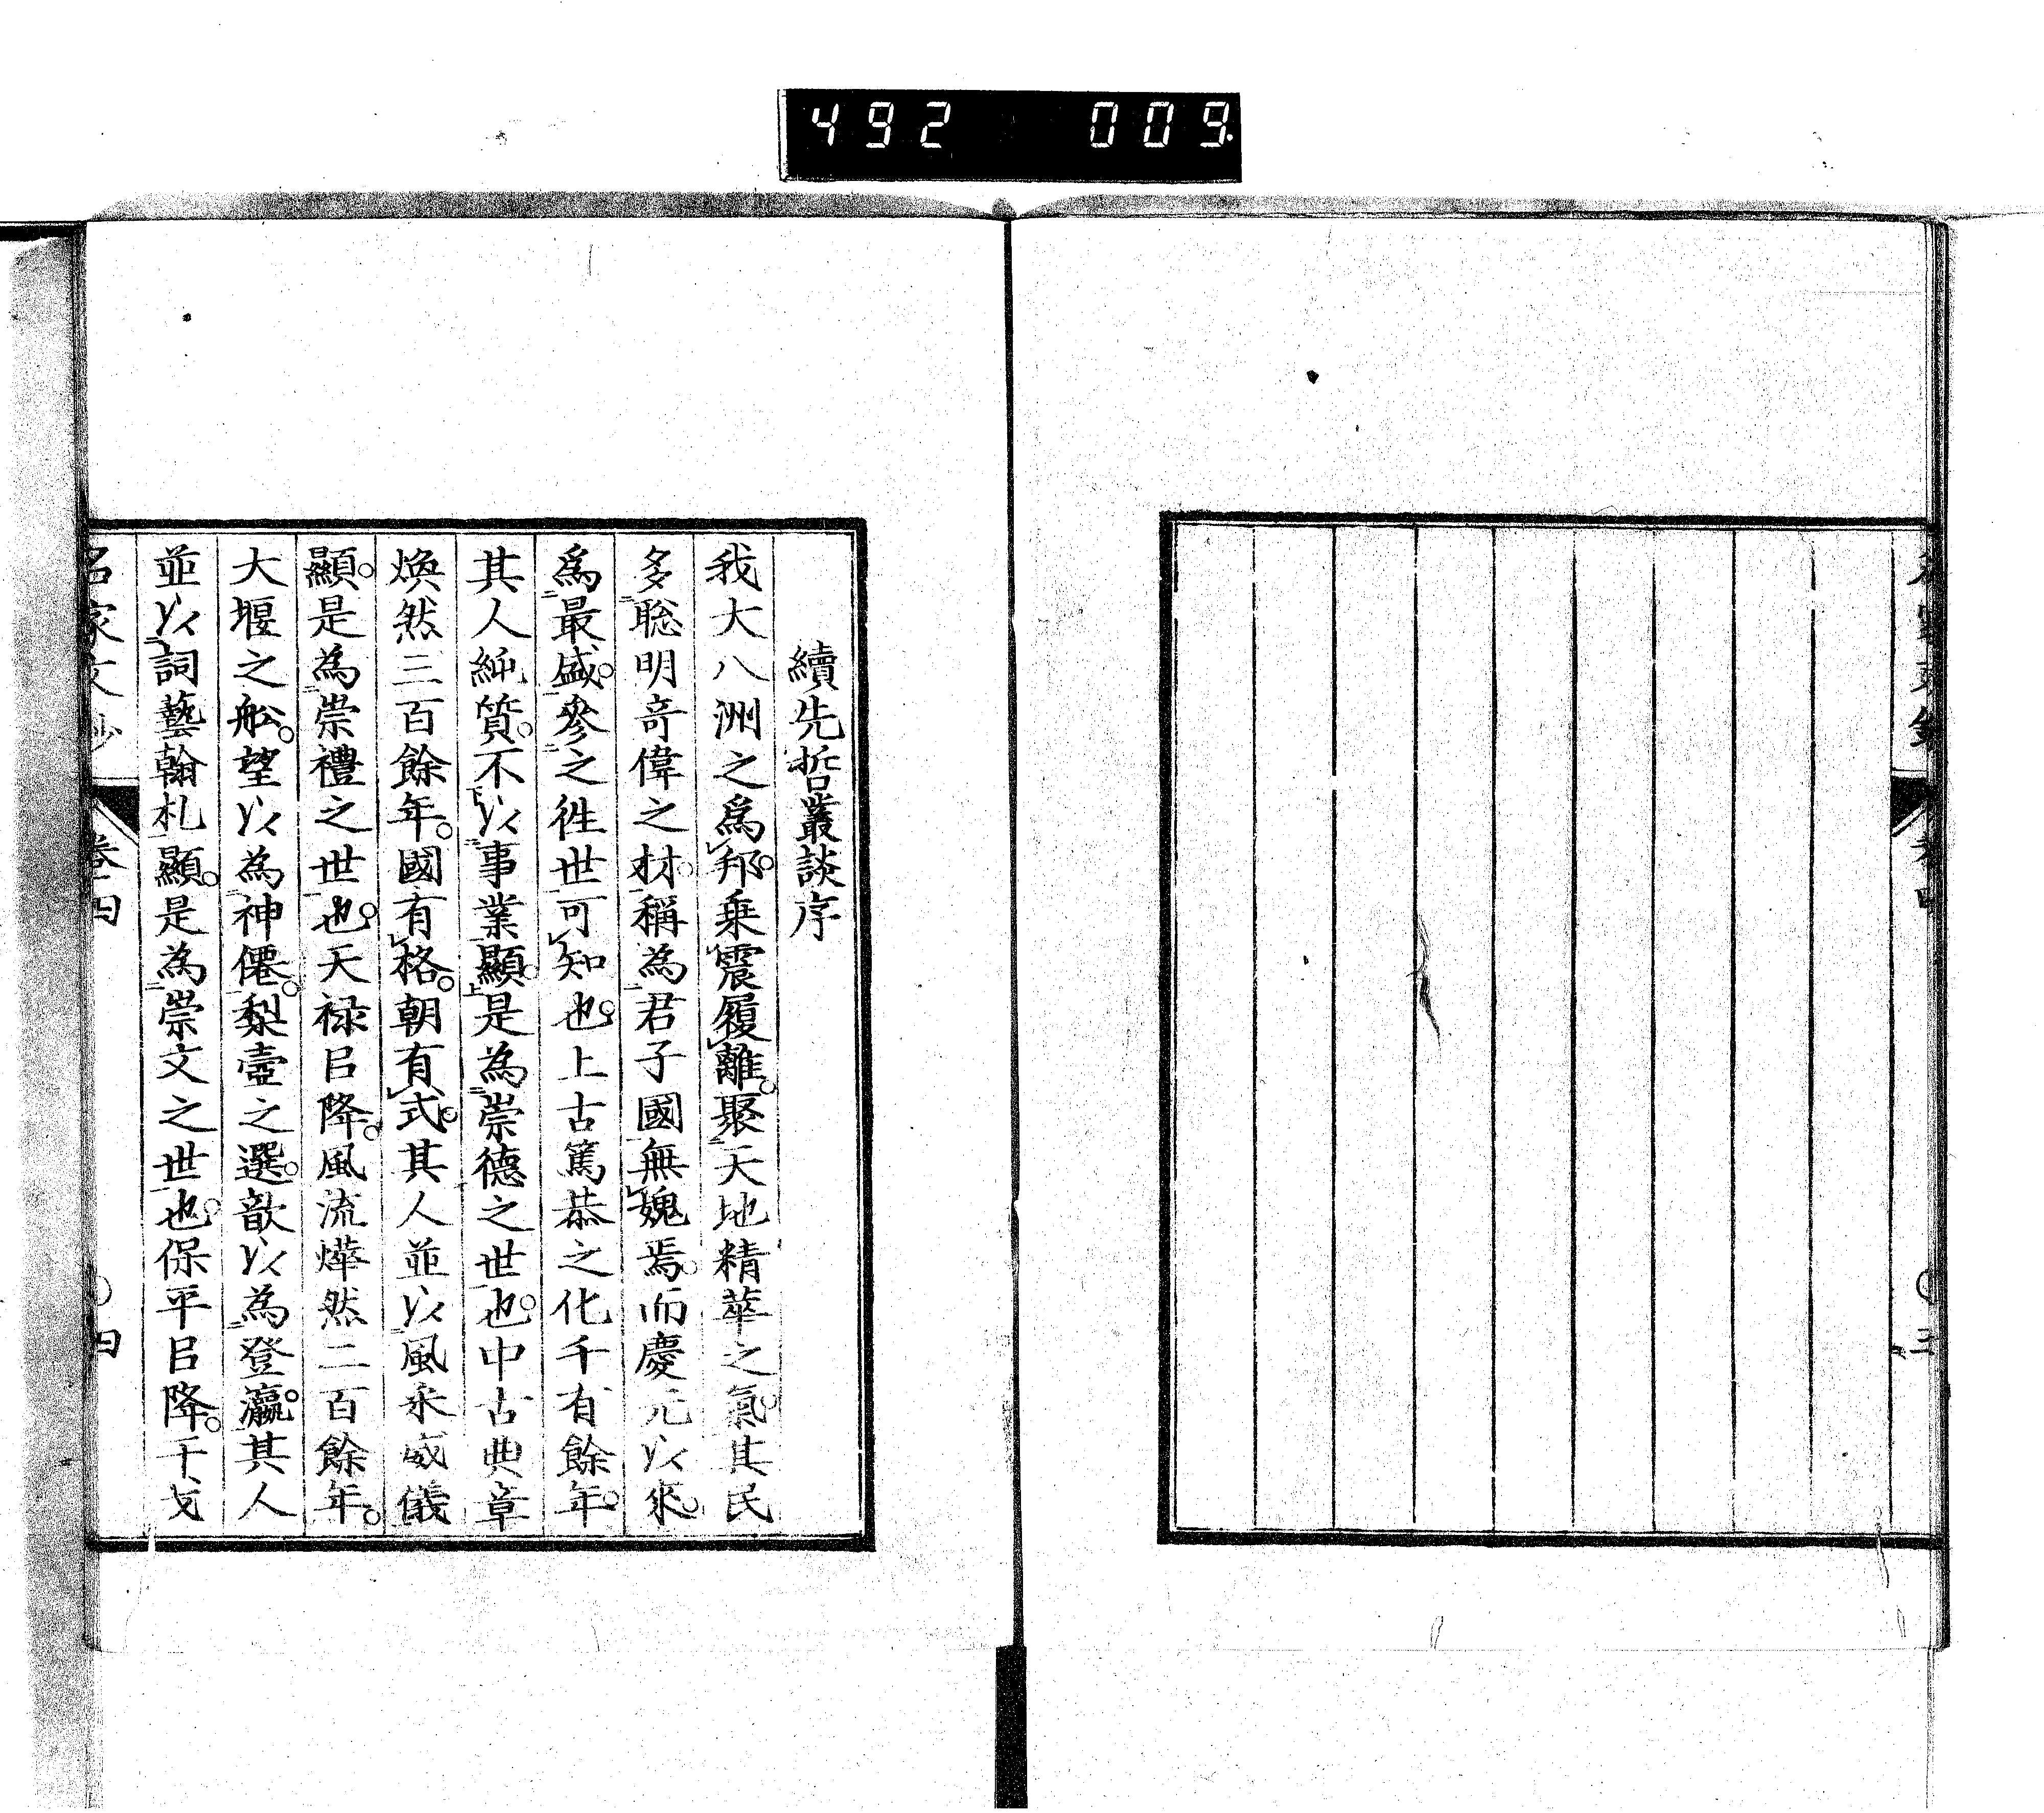 492 009
續先哲叢談序
我大八洲之爲邦。乗震履離。聚天地精華之氣。其民
多聡明奇偉之材。稱為君子國無媿焉。而慶元以來。
爲最盛。參之徃世可知也。上古篤恭之化千有餘年。
其人純質。不以事業顯。是為崇德之世也。中古典章
煥然三百餘年。國有格。朝有式。其人並以風采威儀
顯。是為崇禮之世也。天禄㠯降。風流燁然二百餘年。
大堰之舩。望以為神僊。梨壷之選。歆以為登瀛。其人
並以詞藝翰札顯。是為崇文之世也。保平㠯降。干戈
名家文抄 卷四 四